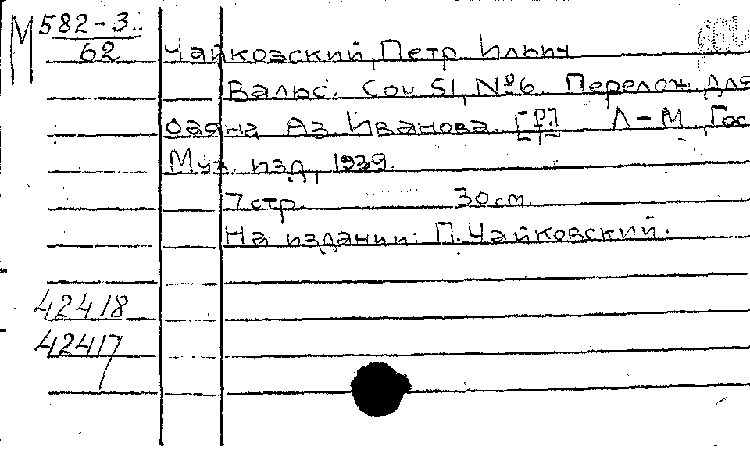 М 582-3
62
Чайковский, Петр Ильич
Вальс. Соч 51, №6. Перелож. для
баяна Аз. Иванова. [Р.] Л-М, Гос
Муз. изд, 1939.
7 стр. 30 см.
На издании: П. Чайковский.
42418
42417